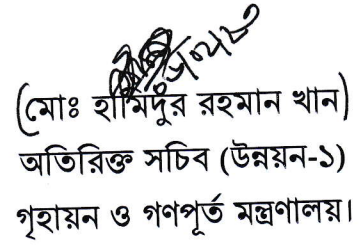 (মোঃ হামিদুর রহমান খান)
অতিরিক্ত সচিব (উন্নয়ন-১)
গৃহায়ন ও গণপূর্ত মন্ত্রণালয়।